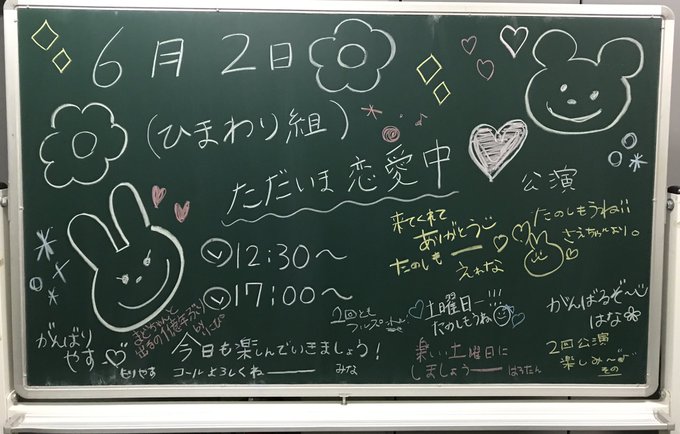 6月2日
(ひまわり組)
ただいま恋愛中
公演
12:30~
17:00~
来てくれて
ありがとう♡
たのしも
えれな
たのしもうね!!
さえちゃんより。
がんばり
やす♡
もりやす
出番の1億年ぶり
2回とも
土曜日ー!!!
たのしもうね
がんばるぞ〜
はな
今日も楽しんでいきましょう!
コールよろしくね
みな
楽しい土曜日に
しましょう
はろたん
2回公演
楽しみ〜
その